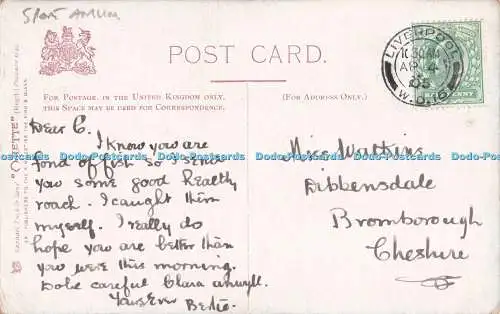 Sport Animal
POST CARD.
FOR POSTAGE, IN THE UNITED KINGDOM ONLY,
THIS SPACE MAY BE USED FOR CORRESPONDENCE.
(FOR ADDRESS ONLY.)
LIVERPOOL
10.30 AM
AP 14
05
W.D.16
Dear C.
I know you are
fond of fish so I send
you some good healthy
roach. I caught them
myself. I really do
hope you are better than
you were this morning.
Do be careful Clara
Yours Ever Bertie.
Miss Watkins
Dibbensdale
Bromborough
Cheshire
Docks Postcards www.dockspostcards.com